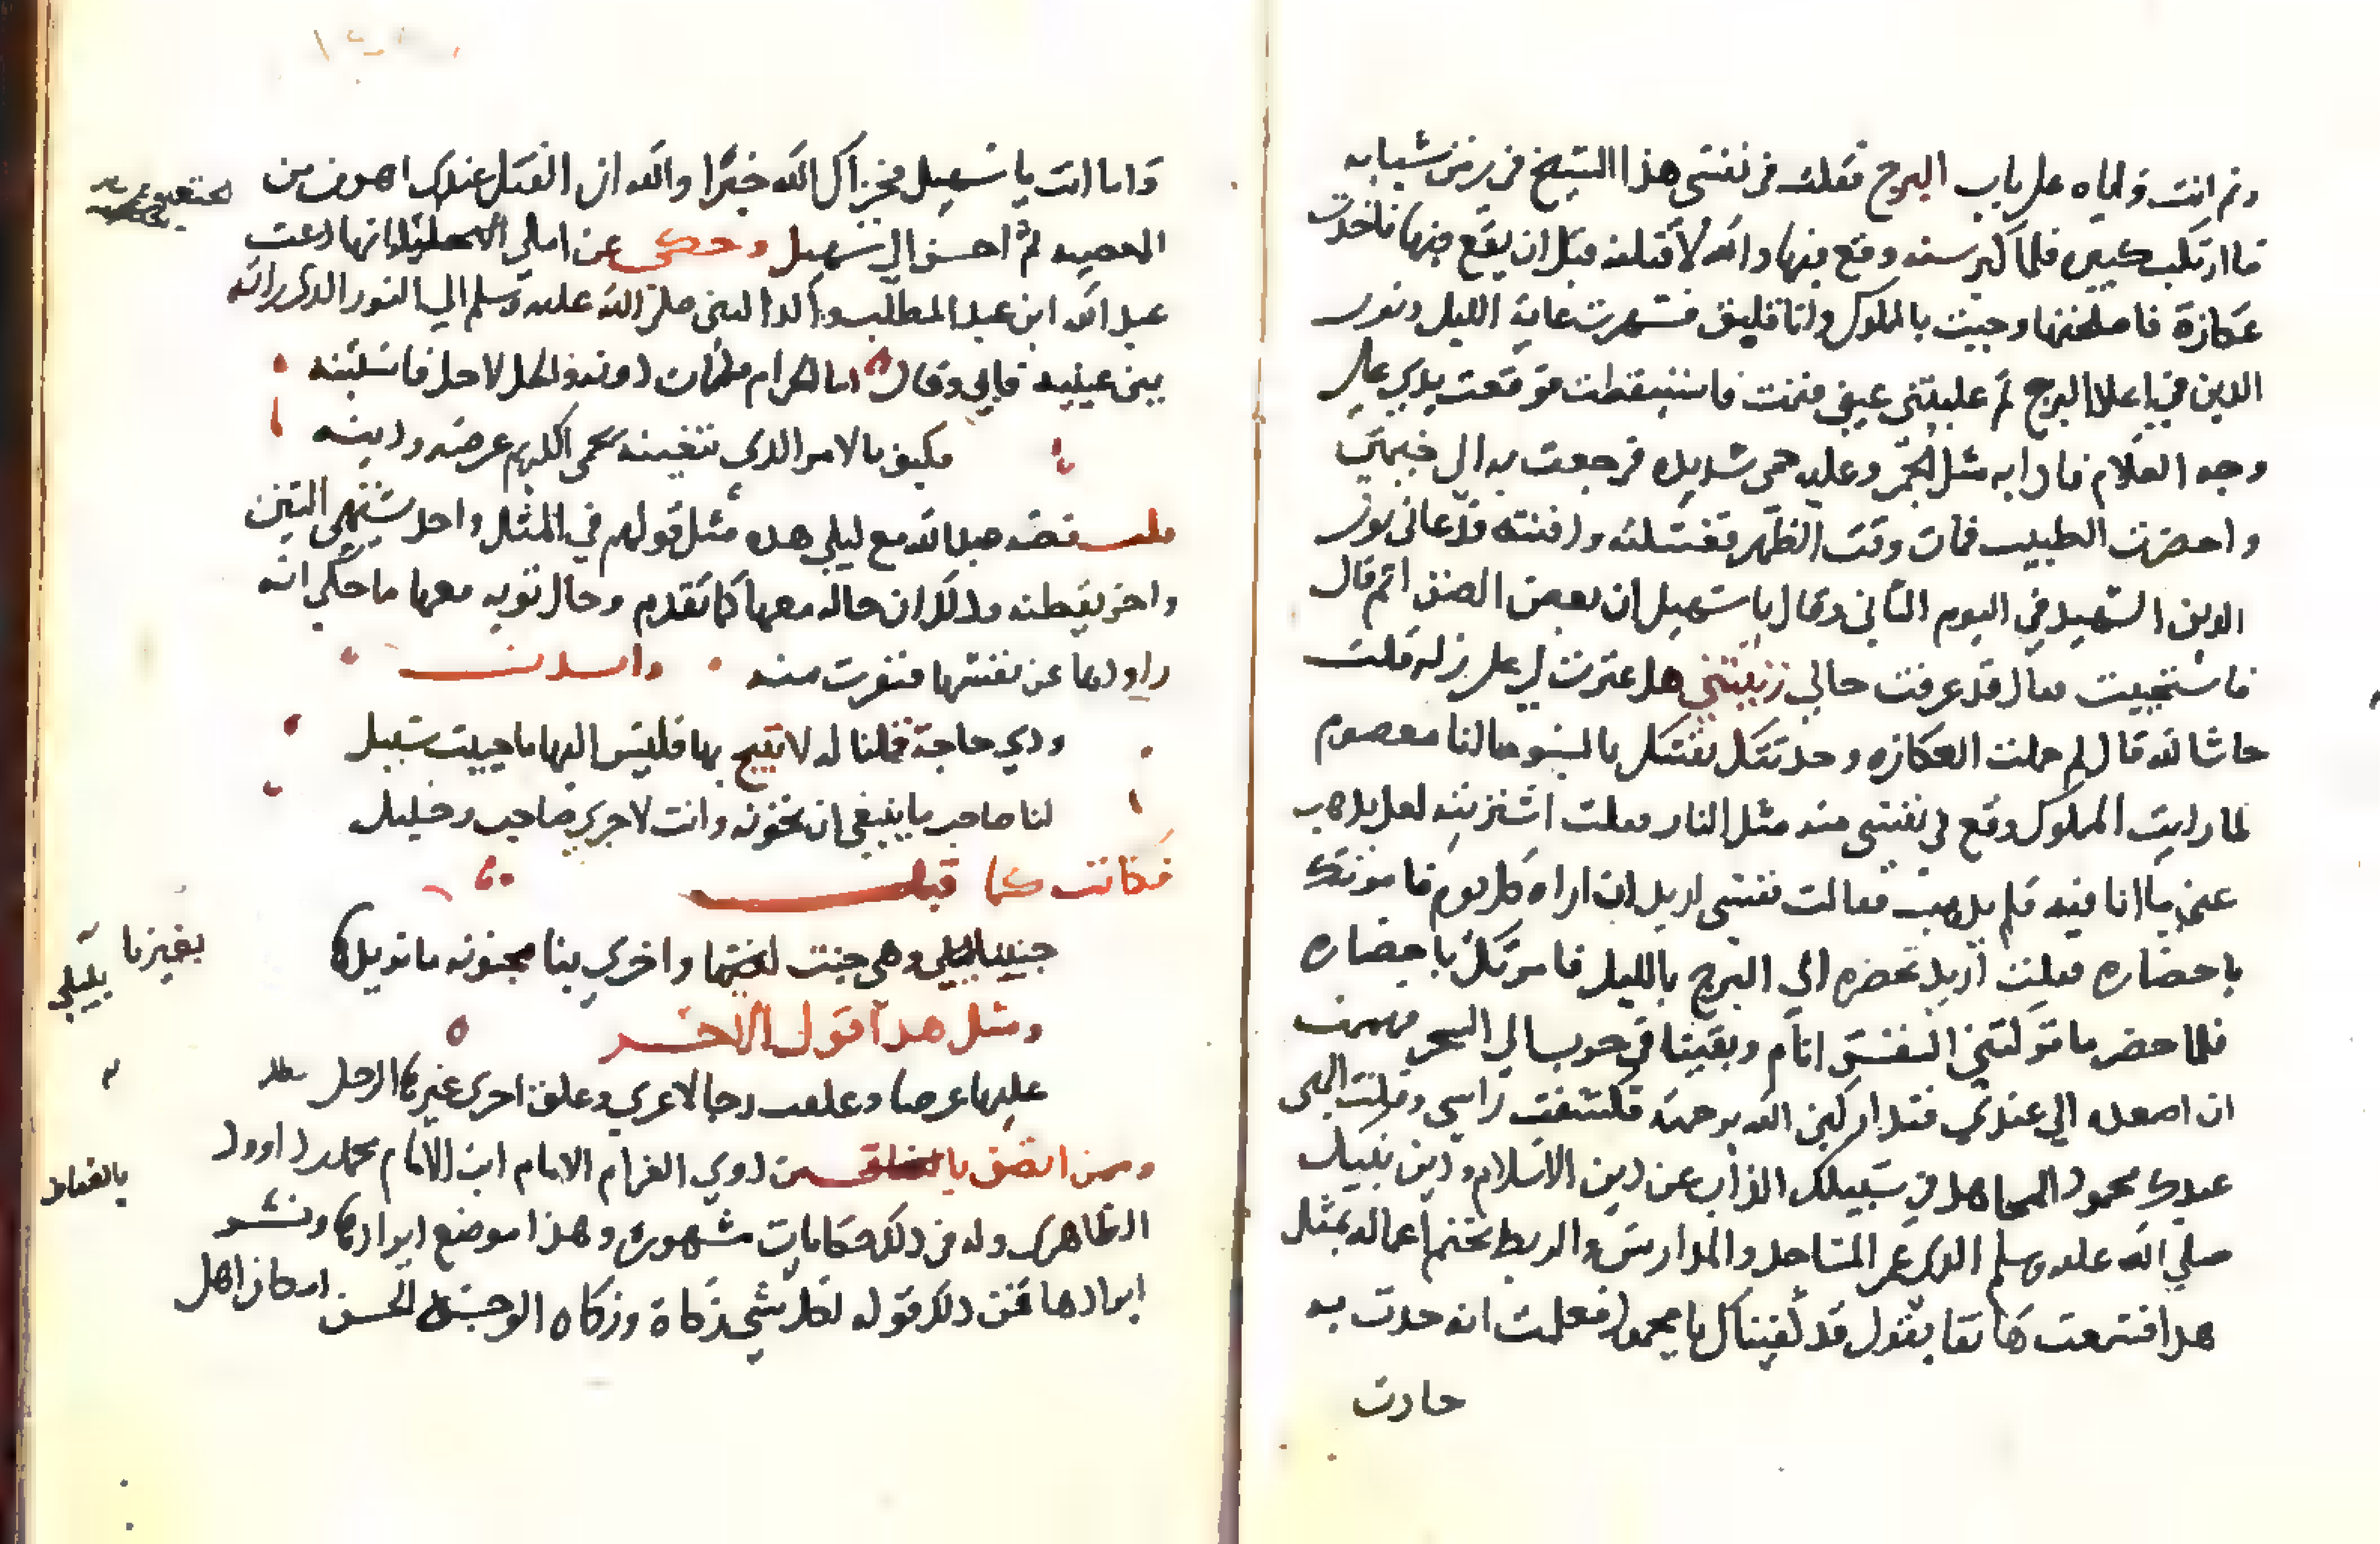 ونم انت واياه على باب البرج فقلت في نفسي هذا الشيخ في زمن شبابه
ما ارتكب كبيره فلما كبر سنه وقع فيها والله لاقتلنه قبل ان يقع فيها فاخدت
عكازة فاصلحتها وجيت بالملوك وانا قليق فسهرت غاية الليل ونور
الدين في اعلا البرج ثم غلبتني عيني فنمت فاستيقظت فوقعت يدي على
وجه الغلام فادا به مثل الجمر وعليه حمى شديده فرجعت به الي خيمتي
واحضرت الطبيب فمات وقت الظهر فغسلته ودفنته فدعاني نور
الدين الشهيد في اليوم الثاني وقال يا سهيل ان بعض الظن اثم قال
فاستحييت فقال قد عرفت حالي زبيتني هل عترت لي على زله قلت
حاشا لله قال لم حملت العكازه وحدتتك نفسك بالسوء مالنا معصوم
لما رايت المملوك وقع في نفسي منه مثل النار فقلت اشتريته لعل يدهب
عني ما انا فيه فلم يدهب فقالت نفسي اريد ان اراه كل يوم فامرتك
باحضاره فقلت اريد تحضره الي البرج بالليل فامرتك باحضاره
فلما حضر ما تركتني النفس انام وبقينا في حرب الي السحر فهممت
ان اصعده الي عندي فتداركني الله برحمته فكشفت راسي وقلت الهي
عبدك محمود المجاهد في سبيلك الذاب عن دين الاسلام ودين نبيك
صلي الله عليه وسلم الدي عمر المساجد والمدارس والربط تختم اعماله بمثل
هدا فسمعت هاتفا يقول قد كفيناك يا محمود فعلمت انه حدت به
حادت
واما انت يا سهيل فجزاك الله خيرا والله ان القتل عندك اهون من
المعصيه ثم احسن الي سهيل وحكي عن انها دعت
عبد الله ابن عبد المطلب والد النبي صلي الله عليه وسلم الي النور الدي راته
بين عينيه فابي وقال اما الحرام فالممات دونه والحل لاحل فاستبينه
فكيف بالامر الدي تبغينه يحمي الكريم عرضه ودينه
قلت قصه عبد الله مع ليلي هده مثل قولهم في المثل واحد يشتهي التين
واخر يقطنه ودلك ان حاله معها كما تقدم وحال توبه معها ما حكي انه
راودها عن نفسها فنفرت منه وانشدت
ودي حاجة فقلنا له لا تبح بها فليس اليها ما حييت سبيل
لنا صاحب ما ينبغي ان نخونه وانت لاخري صاحب وخليل
فكانت كما قيل
جننا بليلي وهي جنت بغيرها واخري بنا مجنونه ما نريدها
بغيرنا
بليلي
ومثل هدا قول الاخر
علقتها عرضا وعلقت رجلا غيري وعلق اخري غيرها الرجل
وممن اتصف بالعفاف من دوي الغرام الامام ابن الامام محمد بن داوود
بالعفاف
الظاهري وله في دلك حكايات مشهوره وهذا موضع ايرادها ونشر
ابرادها فمن دلك قوله لكل شي زكاة وزكاه الوجه الحسن امكان اهل